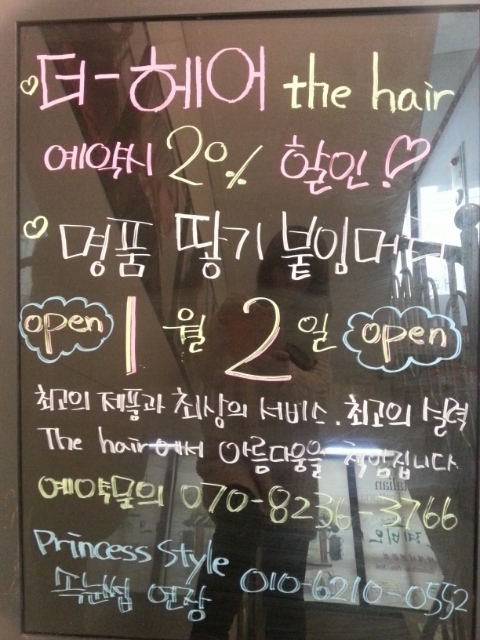 더-헤어 the hair
예약시 20% 할인!
명품 땋기 붙임머리
open 1월 2일 open
최고의 제품과 최상의 서비스. 최고의 실력
The hair에서 아름다움을 책임집니다
예약문의 070-8236-3766
Princess Style
속눈썹 연장 010-6210-0552